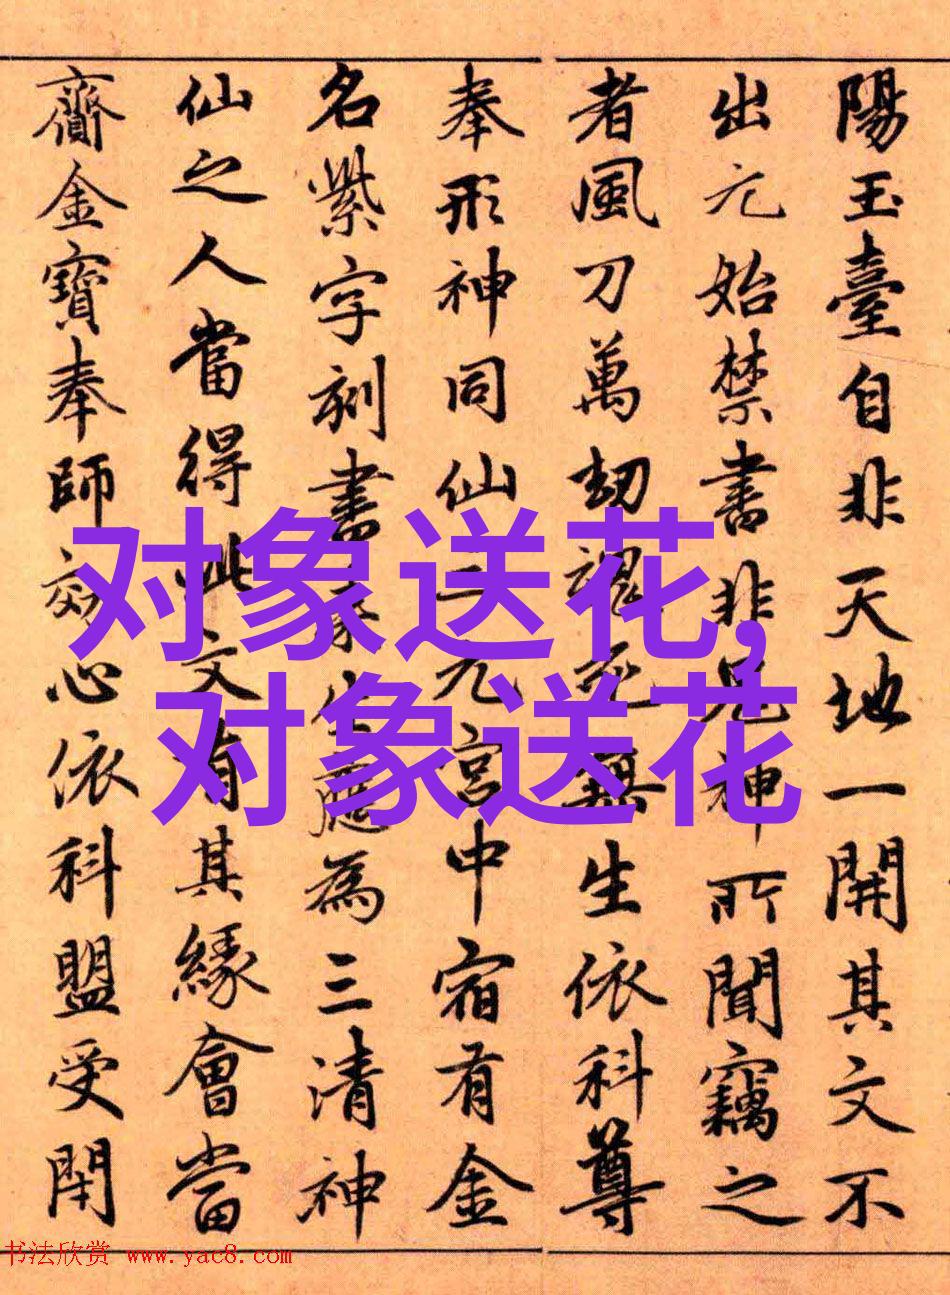 陽玉臺自非天地一開其文不
出元始禁書非鬼神所聞竊之
者風刀萬劫死無生依科尊
奉形神同仙三元宮中宿有金
名紫字刻書生應為三清神
仙之人當得此文有其緣會當
齎金寶奉師效心依科盟受閇
对象送花,
对象送花
书法欣赏 www.yac8.com